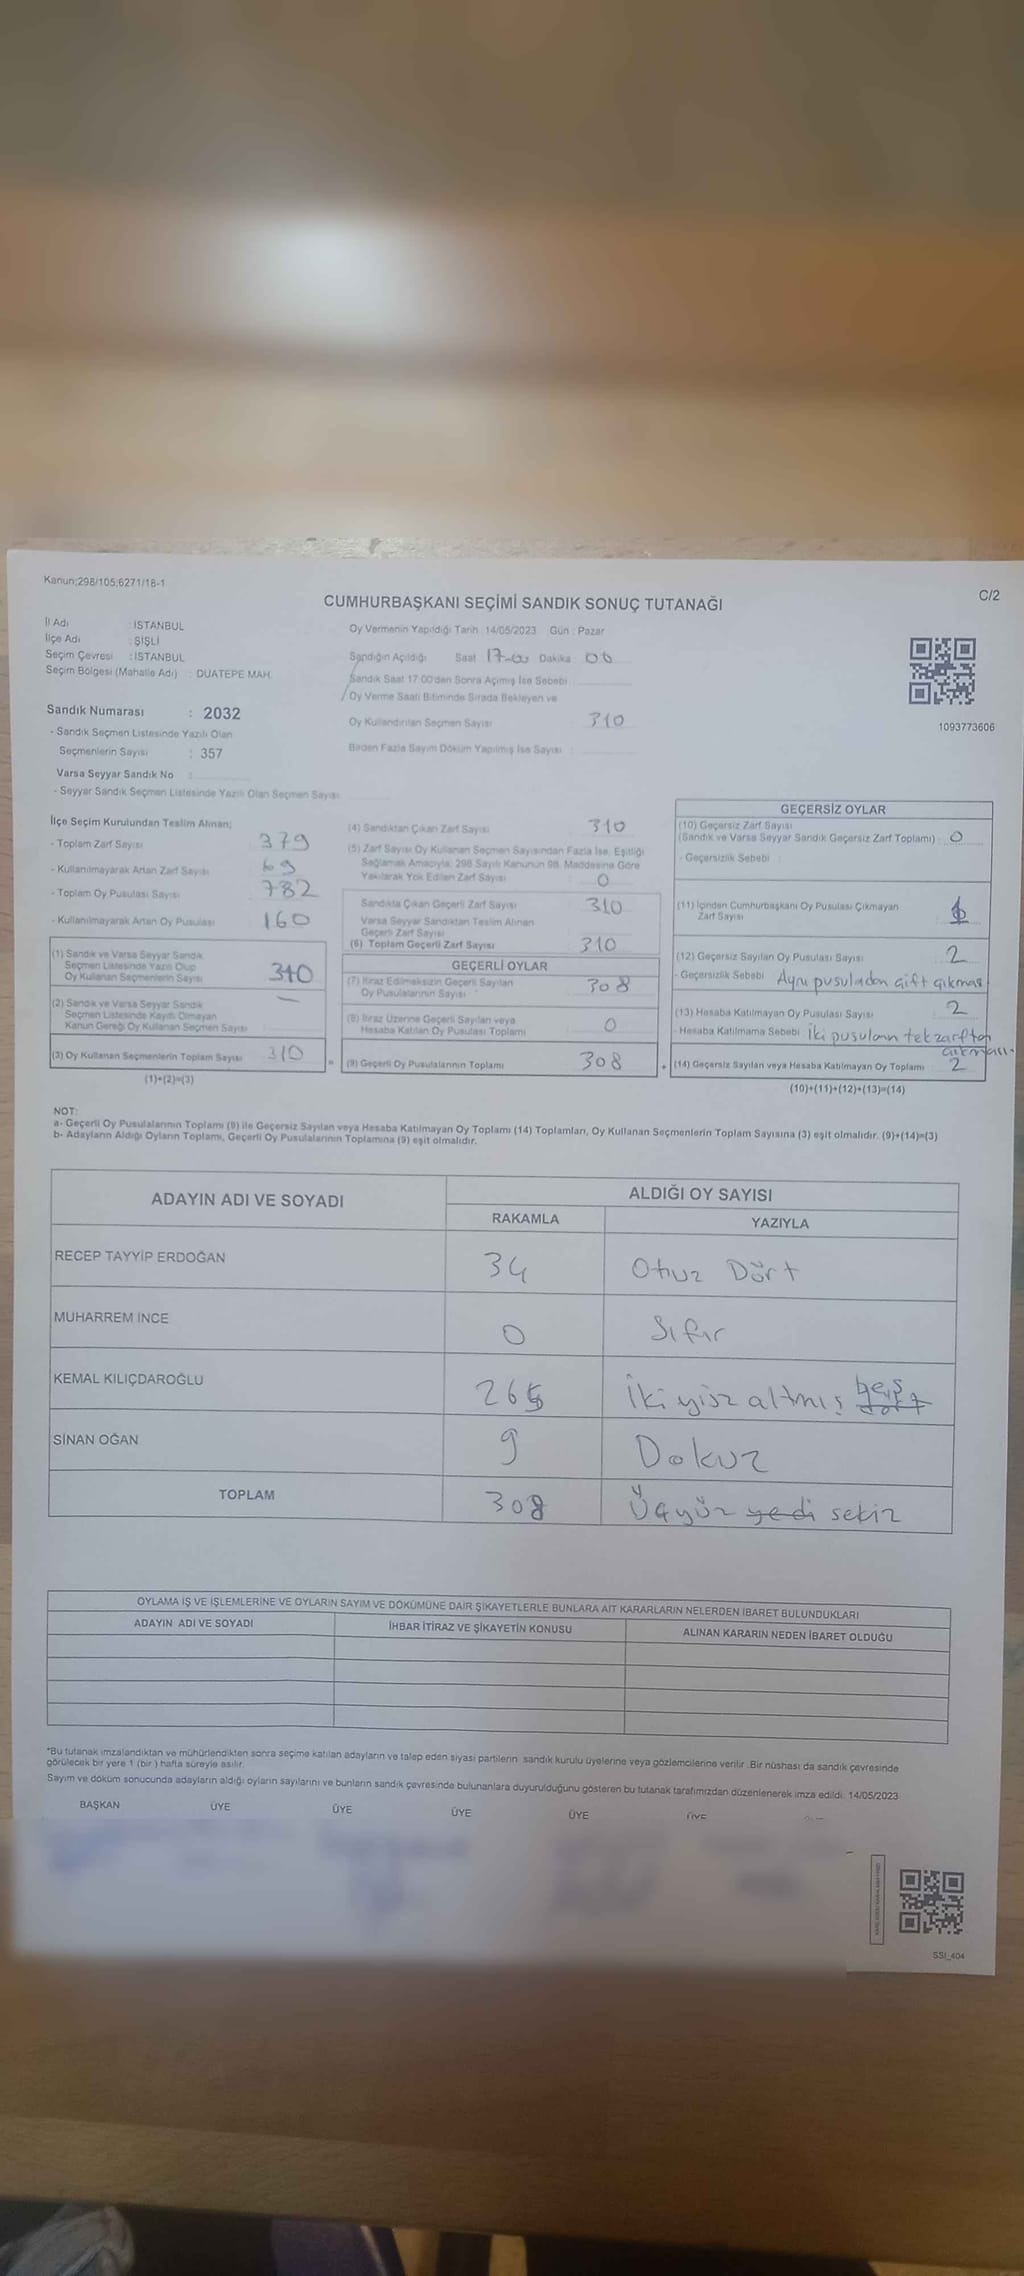 Kanun;298/105;6271/18-1
C/2
CUMHURBAŞKANI SEÇİMİ SANDIK SONUÇ TUTANAĞI
İl Adı : İSTANBUL
İlçe Adı : ŞİŞLİ
Seçim Çevresi : İSTANBUL
Seçim Bölgesi (Mahalle Adı) : DUATEPE MAH.
Sandık Numarası : 2032
- Sandık Seçmen Listesinde Yazılı Olan
Seçmenlerin Sayısı : 357
Varsa Seyyar Sandık No :
- Seyyar Sandık Seçmen Listesinde Yazılı Olan Seçmen Sayısı
Oy Vermenin Yapıldığı Tarih :14/05/2023 Gün : Pazar
Sandığın Açıldığı Saat 17-00 Dakika 00
Sandık Saat 17:00'den Sonra Açımış İse Sebebi
Oy Verme Saati Bitiminde Sırada Bekleyen ve
Oy Kullandırılan Seçmen Sayısı 310
Birden Fazla Sayım Döküm Yapılmış İse Sayısı :
1093773606
İlçe Seçim Kurulundan Teslim Alınan;
- Toplam Zarf Sayısı 379
- Kullanılmayarak Artan Zarf Sayısı 69
- Toplam Oy Pusulası Sayısı 782
- Kullanılmayarak Artan Oy Pusulası 160
(1) Sandık ve Varsa Seyyar Sandık
Seçmen Listesinde Yazılı Olup
Oy Kullanan Seçmenlerin Sayısı 310
(2) Sandık ve Varsa Seyyar Sandık
Seçmen Listesinde Kayıtlı Olmayan
Kanun Gereği Oy Kullanan Seçmen Sayısı —
(3) Oy Kullanan Seçmenlerin Toplam Sayısı 310
(1)+(2)=(3)
(4) Sandıktan Çıkan Zarf Sayısı 310
(5) Zarf Sayısı Oy Kullanan Seçmen Sayısından Fazla İse, Eşitliği
Sağlamak Amacıyla; 298 Sayılı Kanunun 98. Maddesine Göre
Yakılarak Yok Edilen Zarf Sayısı : 0
Sandıkta Çıkan Geçerli Zarf Sayısı 310
Varsa Seyyar Sandıktan Teslim Alınan
Geçerli Zarf Sayısı
(6) Toplam Geçerli Zarf Sayısı 310
GEÇERLİ OYLAR
(7) İtiraz Edilmeksizin Geçerli Sayılan
Oy Pusulalarının Sayısı 308
(8) İtiraz Üzerine Geçerli Sayılan veya
Hesaba Katılan Oy Pusulası Toplamı 0
(9) Geçerli Oy Pusulalarının Toplamı 308
GEÇERSİZ OYLAR
(10) Geçersiz Zarf Sayısı
(Sandık ve Varsa Seyyar Sandık Geçersiz Zarf Toplamı) : 0
- Geçersizlik Sebebi :
(11) İçinden Cumhurbaşkanı Oy Pusulası Çıkmayan
Zarf Sayısı
(12) Geçersiz Sayılan Oy Pusulası Sayısı 2
- Geçersizlik Sebebi Aynı pusuladan çift çıkması
(13) Hesaba Katılmayan Oy Pusulası Sayısı 2
- Hesaba Katılmama Sebebi İki pusulanın tek zarftan
çıkması.
(14) Geçersiz Sayılan veya Hesaba Katılmayan Oy Toplamı 2
(10)+(11)+(12)+(13)=(14)
NOT:
a- Geçerli Oy Pusulalarının Toplamı (9) ile Geçersiz Sayılan veya Hesaba Katılmayan Oy Toplamı (14) Toplamları, Oy Kullanan Seçmenlerin Toplam Sayısına (3) eşit olmalıdır. (9)+(14)=(3)
b- Adayların Aldığı Oyların Toplamı, Geçerli Oy Pusulalarının Toplamına (9) eşit olmalıdır.
ADAYIN ADI VE SOYADI ALDIĞI OY SAYISI
RAKAMLA YAZIYLA
RECEP TAYYİP ERDOĞAN 34 Otuz Dört
MUHARREM İNCE 0 Sıfır
KEMAL KILIÇDAROĞLU 265 İki yüz altmış beş dört
SİNAN OĞAN 9 Dokuz
TOPLAM 308 Üçyüz yedi sekiz
OYLAMA İŞ VE İŞLEMLERİNE VE OYLARIN SAYIM VE DÖKÜMÜNE DAİR ŞİKAYETLERLE BUNLARA AİT KARARLARIN NELERDEN İBARET BULUNDUKLARI
ADAYIN ADI VE SOYADI İHBAR İTİRAZ VE ŞİKAYETİN KONUSU ALINAN KARARIN NEDEN İBARET OLDUĞU
*Bu tutanak imzalandıktan ve mühürlendikten sonra seçime katılan adayların ve talep eden siyasi partilerin sandık kurulu üyelerine veya gözlemcilerine verilir .Bir nüshası da sandık çevresinde
görülecek bir yere 1 (bir) hafta süreyle asılır.
Sayım ve döküm sonucunda adayların aldığı oyların sayılarını ve bunların sandık çevresinde bulunanlara duyurulduğunu gösteren bu tutanak tarafımızdan düzenlenerek imza edildi. 14/05/2023
BAŞKAN ÜYE ÜYE ÜYE ÜYE ÜYE
SSI_404